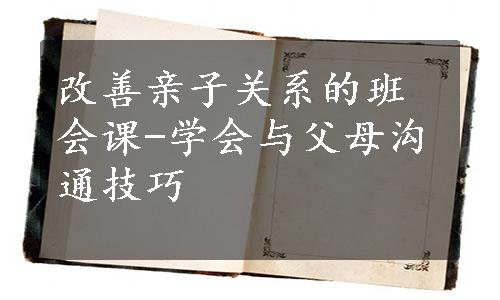 改善亲子关系的班
会课-学会与父母沟
通技巧